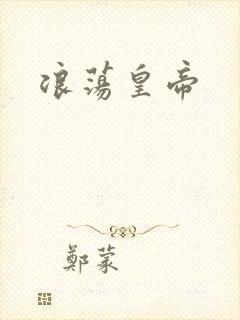 浪蕩皇帝
鄭蒙